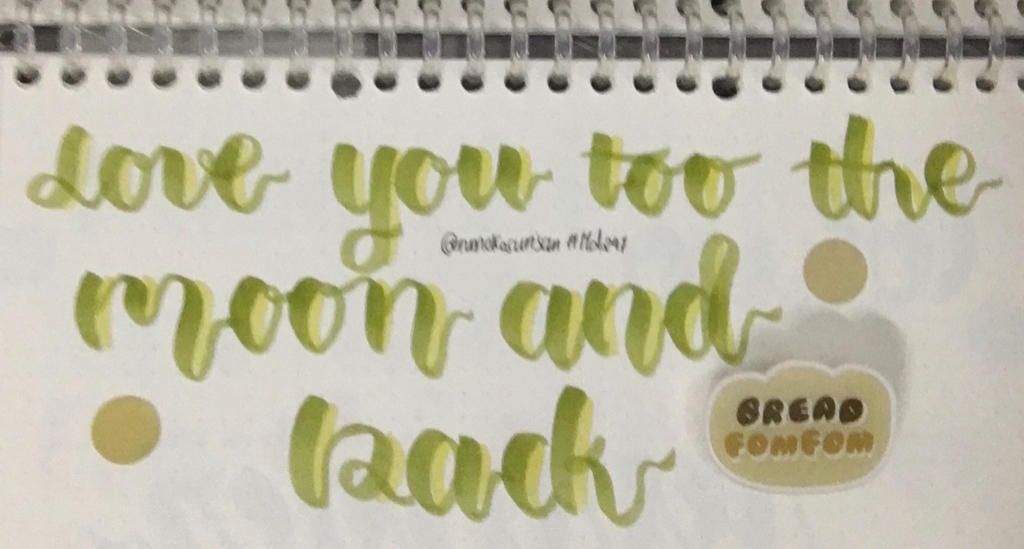 Love you too the
moon and
back
BREAD
FOMFOM